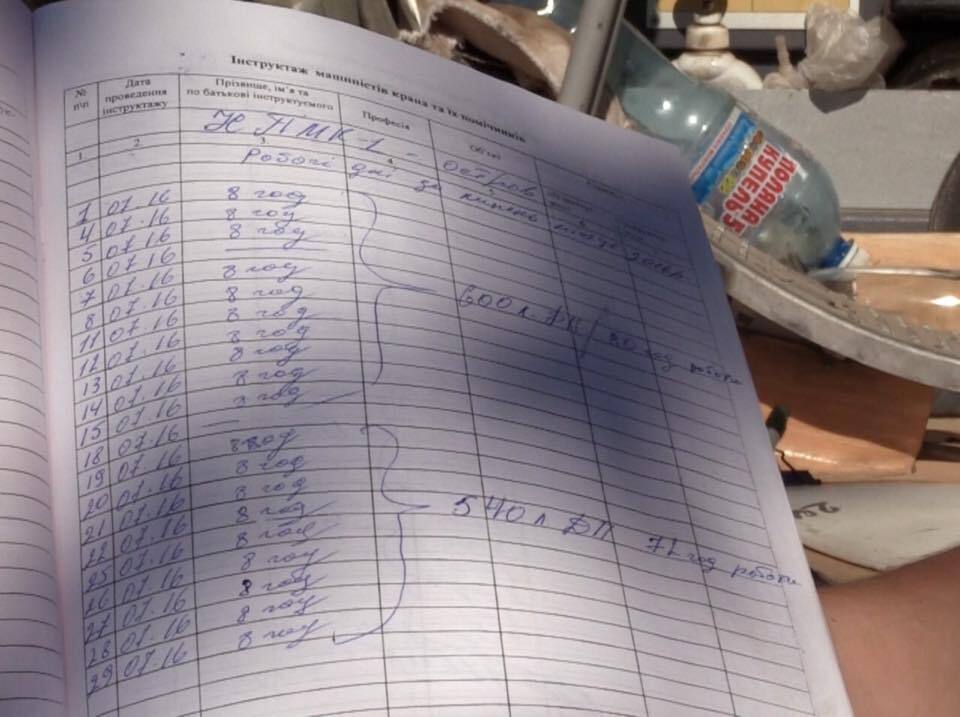 Інструктаж машиністів крана та їх помічників
№ п\п
Дата проведення інструктажу
Прізвище, ім'я та по батькові інструктуемого
Професія
Об'єкт
1 2 3. 4.
Робочі дні за липень місяць 2016р
1 07.16 8 год
4 07.16 8 год
5 07.16 8 год
6 07.16 —
7 07.16 8 год
8 07.16 8 год
11 07.16 8 год
12 07.16 8 год
13 07.16 8 год
14 07.16 8 год
15 07.16 —
600 л ДП / 80 год роботи
18 07.16 8 год
19 07.16 8 год
20 07.16 8 год
21 07.16 8 год
22 07.16 8 год
25 07.16 8 год
26 07.16 8 год
27 07.16 8 год
28 07.16 8 год
29 07.16
540 л ДП год роботи
ПОЛЯНА
КУПЕЛЬ